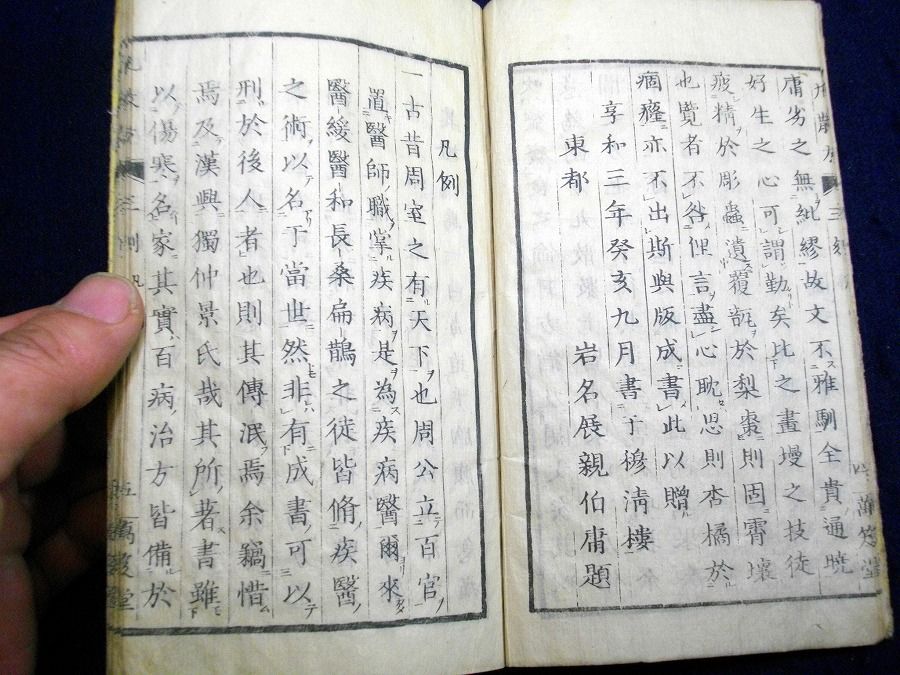 庸劣之無紕繆故文不雅馴全貴通曉
好生之心可謂勤矣比之畫墁之技徒
疲精於彫蟲遺覆瓿於梨棗則固霄壤
也覽者不咎俚言盡心耽思則杏橘於
痼癃亦不出斯與版成書此以贈
享和三年癸亥九月書于穆清樓
東都 岩名展親伯庸題
凡例
一古昔周室之有天下也周公立百官
置醫師職掌疾病是為疾病醫爾來
醫緩醫和長桑扁鵲之徒皆脩疾醫
之術以名于當世然非有成書可以
刑於後人者也則其傳泯焉余竊惜
焉及漢興獨仲景氏哉其所著書雖
以傷寒名家其實百病治方皆備於